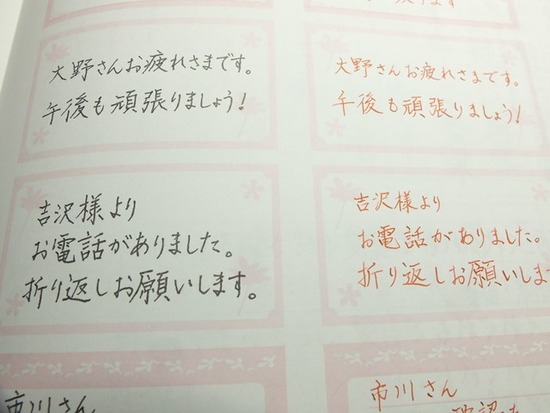 大野さんお疲れさまです。
午後も頑張りましょう!
吉沢様より
お電話がありました。
折り返しお願いします。
市川さん
大野さんお疲れさまです。
午後も頑張りましょう!
吉沢様より
お電話がありました。
折り返しお願いしま
市川さん